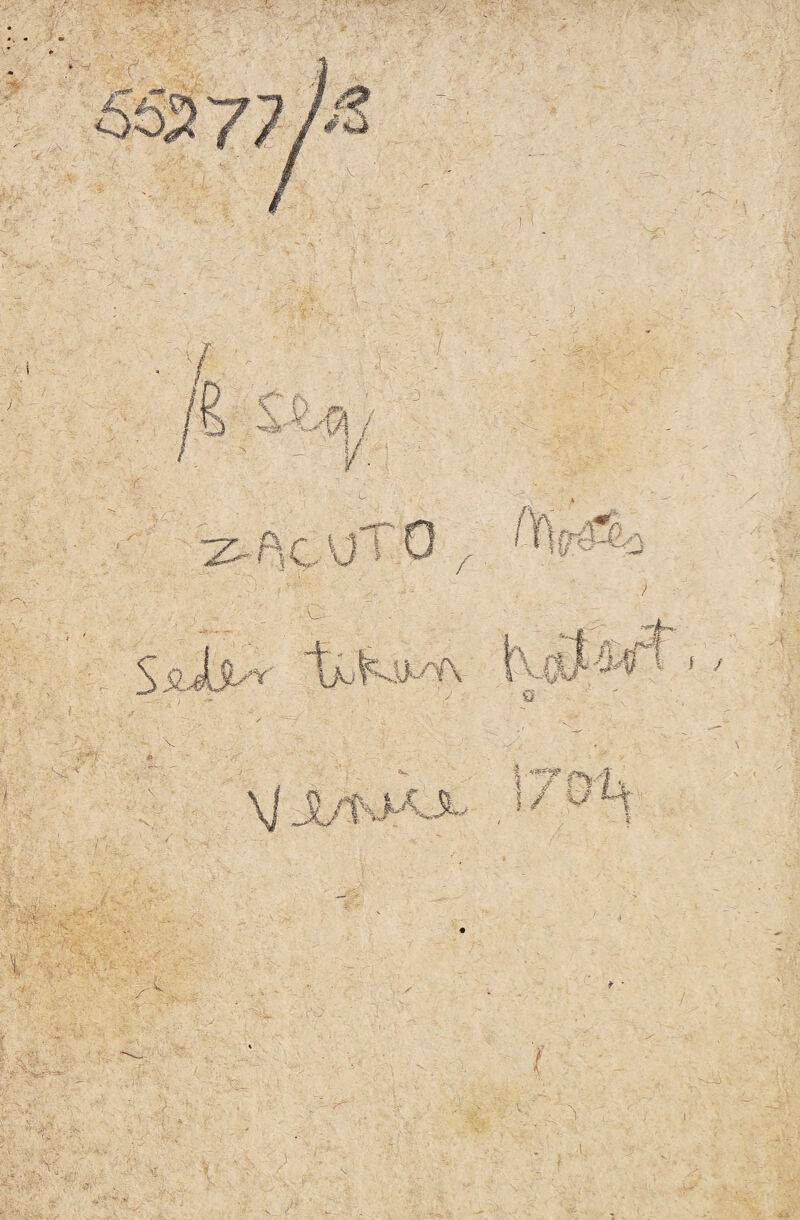 55277/B
/B seq.
ZACUTO, Moses
Seder tikun ḥatsot..
Venice 1704